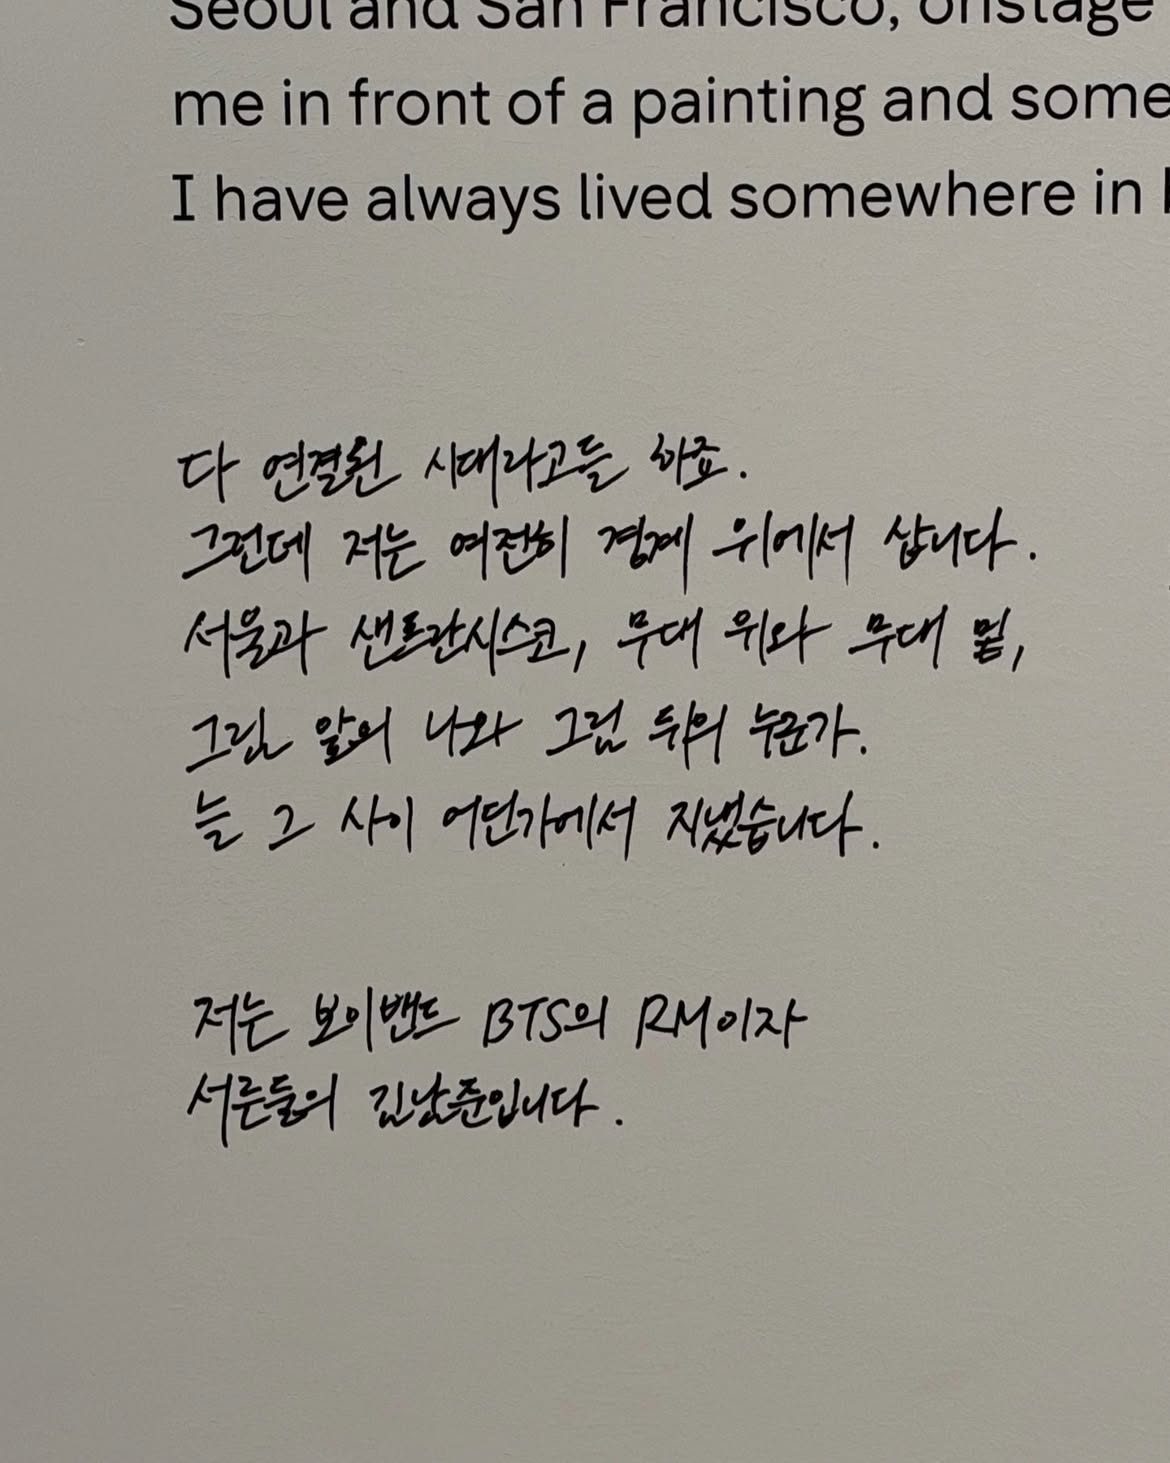 Seoul and San Francisco, onstage
me in front of a painting and some
I have always lived somewhere in
다 연결된 시대라고들 하죠.
그런데 저는 여전히 경계 위에서 삽니다.
서울과 샌프란시스코, 무대 위와 무대 밑,
그림 앞의 나와 그림 뒤의 누군가.
늘 그 사이 어딘가에서 지냈습니다.
저는 보이밴드 BTS의 RM이자
서른둘의 김남준입니다.